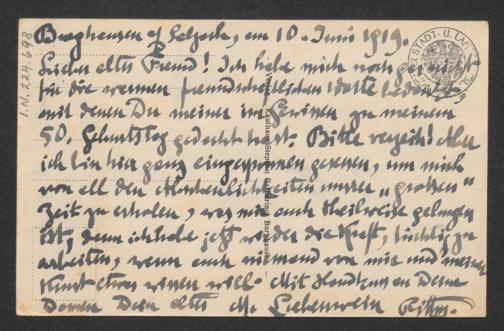 Burghausen a/ Salzach, am 10. Juni 1919.
Lieber alter Freund! Ich habe mich noch gar nicht
für die warmen freundschaftlichen Worte bedankt,
mit denen Du meiner im zu meinem
50. Geburtstag gedacht hast. Bitte verzeih! Aber
ich bin hier ganz eingesponnen gewesen, um mich
von all den unserer „großen"
Zeit zu erholen, was mir auch theilweise gelungen
ist, denn ich habe jetzt wieder die Kraft, tüchtig zu
arbeiten, wenn auch niemand von mir und meiner
Kunst etwas wissen will. Mit Handküssen Deine
Damen Dein alter M. Liebenwein Rittm.
I.N. 221.698
STADT- U. LA
Burghausen